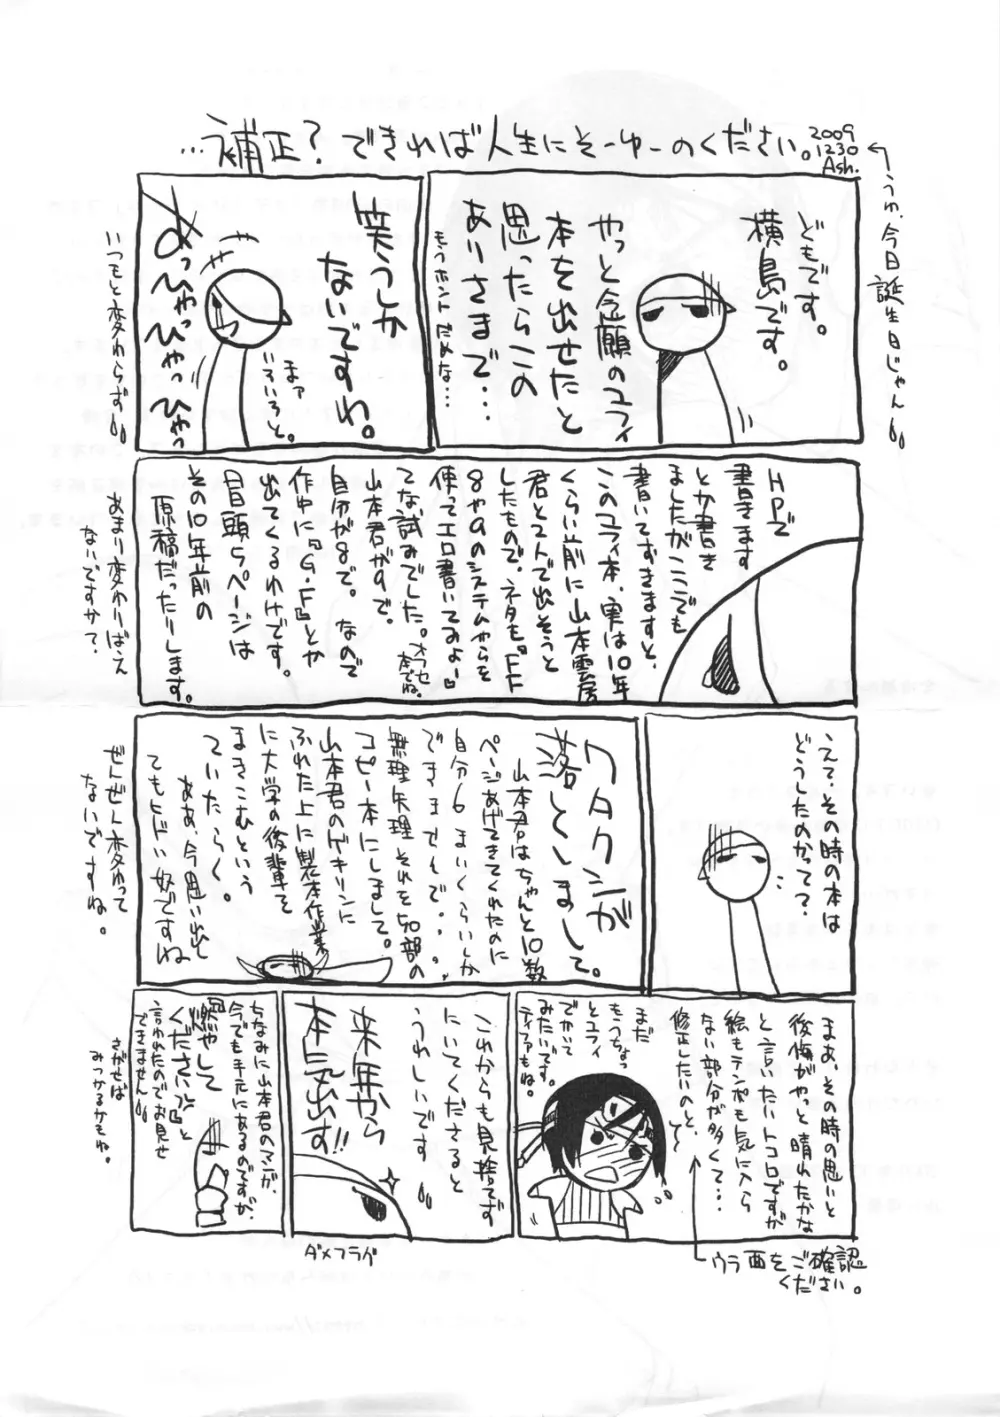 …補正？できれば人生にそーゆーのください。
2009
1230
Ash.
うわ、今日誕生日じゃん〇〇
どもです。
横島です。
やっと念願のユフィ
本を出せたと
思ったらこの
ありさまで…
もうホントだめな…
笑うしか
ないですわ。
まァ
いろいろと。
あっひゃっひゃっひゃっ
いつもと変わらず〇〇
HPで
書きます
とか書き
ましたがここでも
書いてずきますと、
このユフィ本、実は10年
くらい前に山本雲居
君と2人で出そうと
したもので、ネタも『FF
8や7のシステムやらを
使ってエロ書いてみよー』
てな試みでした。
オフセ
本でね。
山本君が7で。
自分が8で。なので
作中に『G.F』とか
出てくるわけです。
冒頭5ページは
その10年前の
原稿だったりします。
あまり変わりばえ
ないですか？
えて、その時の本は
どうしたかって？
ワタクシが
落としまして。
山本君はちゃんと10数
ページあげてきてくれたのに
自分6まいくらいしか
できませんで…
無理矢理それを50部の
コピー本にしまして。
山本君のゲキリンに
ふれた上に製本作業
に大学の後輩を
まきこむという
ていたらく。
ああ、今思い出し
てもヒドい奴ですね
ぜんぜん変わって
ないですね。
まあ、その時の思いと
後悔がやっと晴れたかな
と言いたいトコロですが
絵もテンポも気に入ら
ない部分が多くて…
修正したいのと、
まだ
もうちょっ
とユフィ
でかいて
みたいです。
ティファもね。
ウラ面をご確認
ください。
これからも見捨てず
にいてくださると
うれしいです〇〇
来年から
本気出す!!
ダメフラグ
ちなみに山本君のマンガ、
今でも手元にあるのですが、
『燃やして
ください』と
言われたのでお見せ
できません〇〇
さがせば
みつかるかもね。